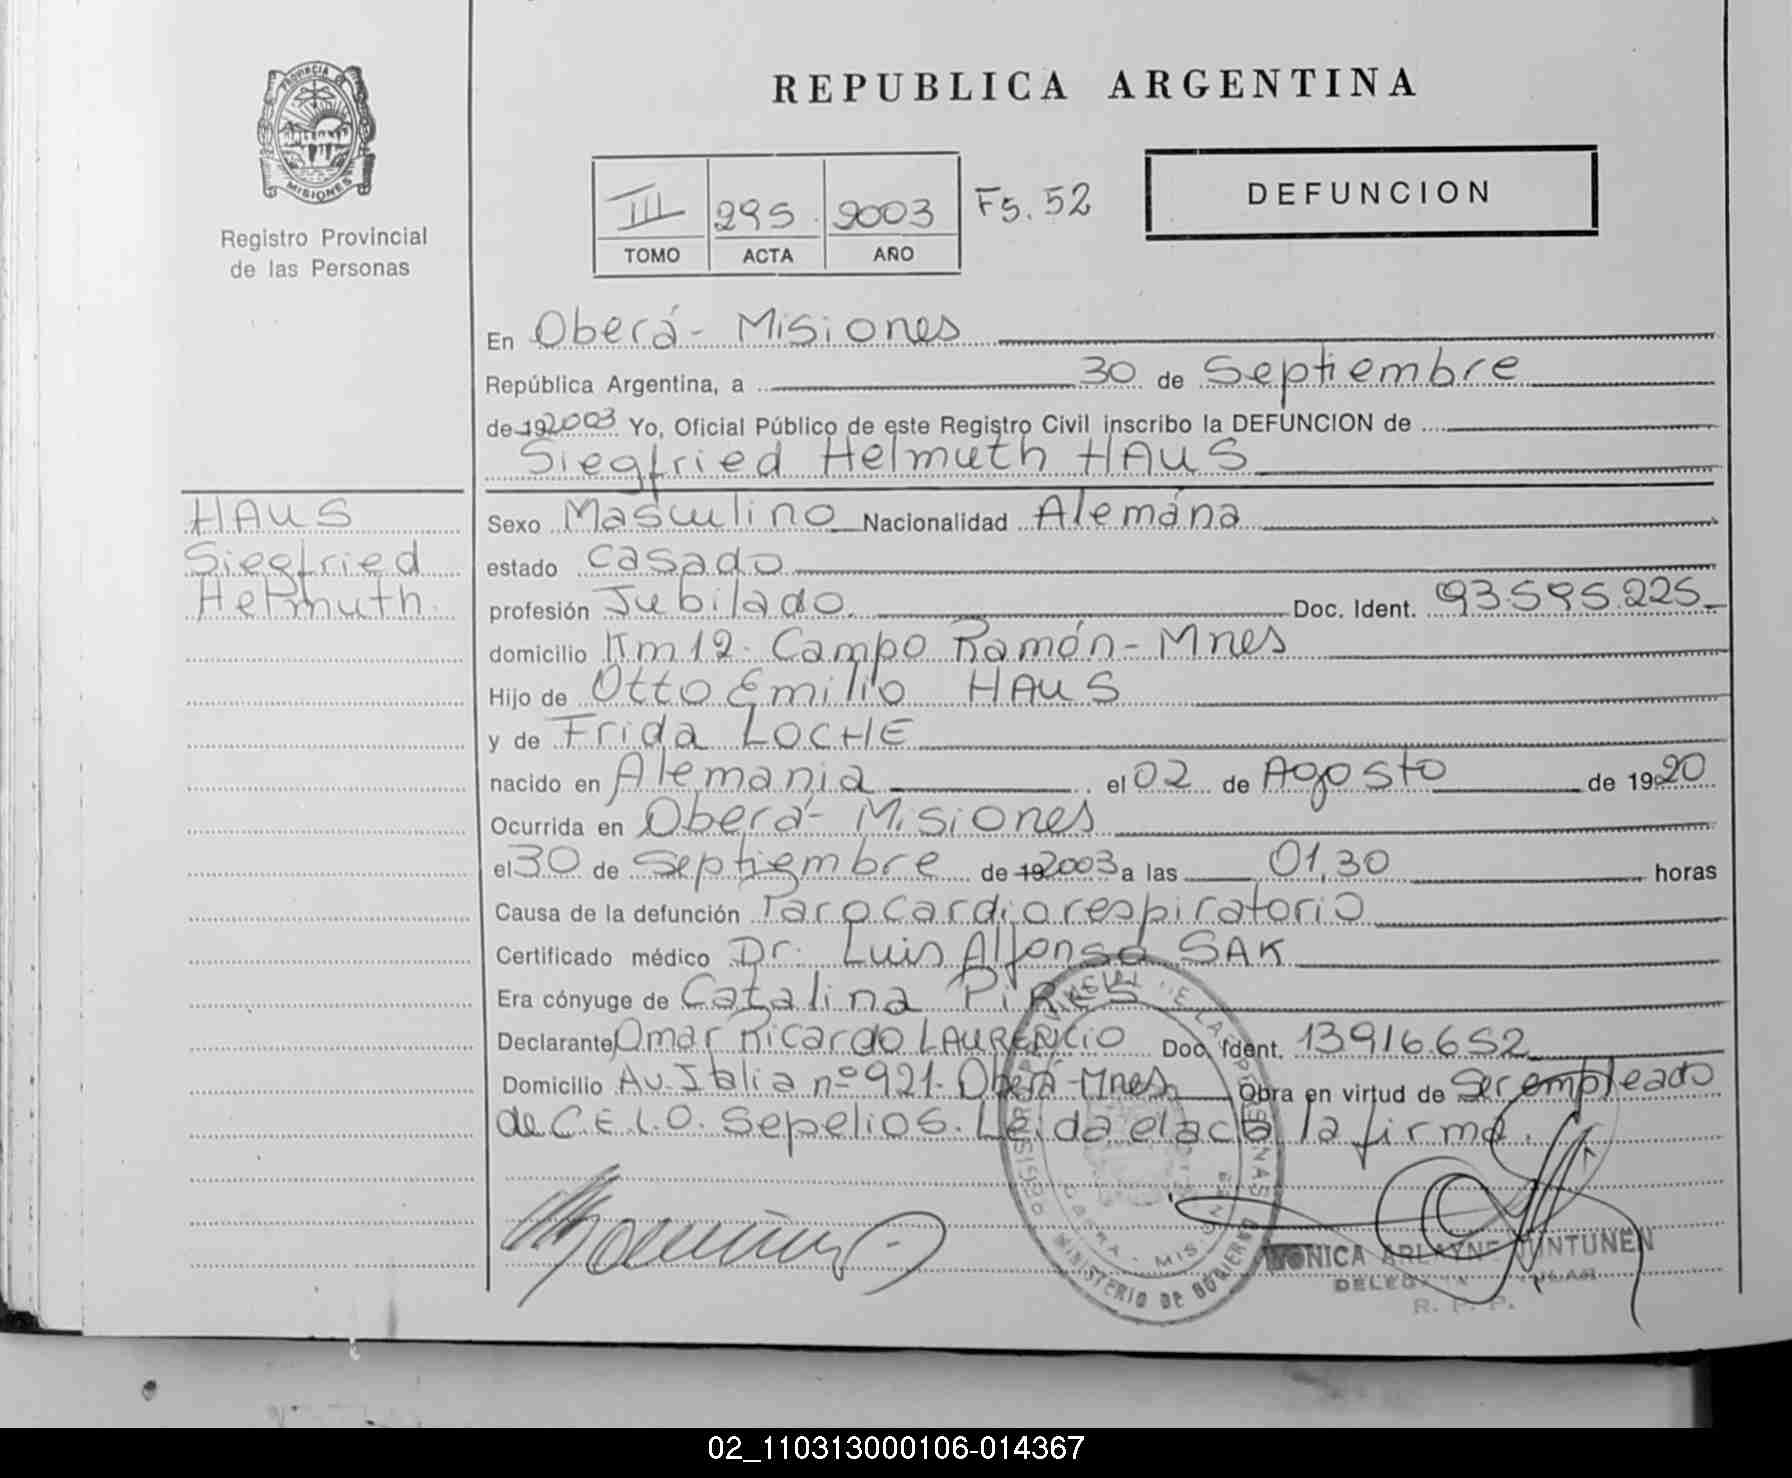 PROVINCIA DE
MISIONES
Registro Provincial
de las Personas
REPUBLICA ARGENTINA
III 295 2003 Fs. 52
TOMO ACTA AÑO
DEFUNCION
En Oberá - Misiones
República Argentina, a 30 de Septiembre
de 192003 Yo, Oficial Público de este Registro Civil inscribo la DEFUNCION de
Siegfried Helmuth HAUS
HAUS
Siegfried
Helmuth.
Sexo Masculino Nacionalidad Alemána
estado casado
profesión Jubilado. Doc. Ident. 93.595.225
domicilio Km 12. Campo Ramón - Mnes
Hijo de Otto Emilio HAUS
y de Frida LOCHE
nacido en Alemania el 02 de Agosto de 1920
Ocurrida en Oberá - Misiones
el 30 de Septiembre de 192003 a las 01,30 horas
Causa de la defunción Paro cardiorespiratorio
Certificado médico Dr. Luis Alfonso SAK
Era cónyuge de Catalina
Declarante Omar Ricardo LAURENCIO Doc. Ident. 13916652
Domicilio Av. Italia nº 921. Oberá - Mnes Obra en virtud de Ser empleado
de C.E.L.O. Sepelios. Leida el acta la firma.
REGISTRO PROVINCIAL DE LAS PERSONAS
MINISTERIO DE GOBIERNO
MONICA ARLAYNE
R. P. P.
02_110313000106-014367